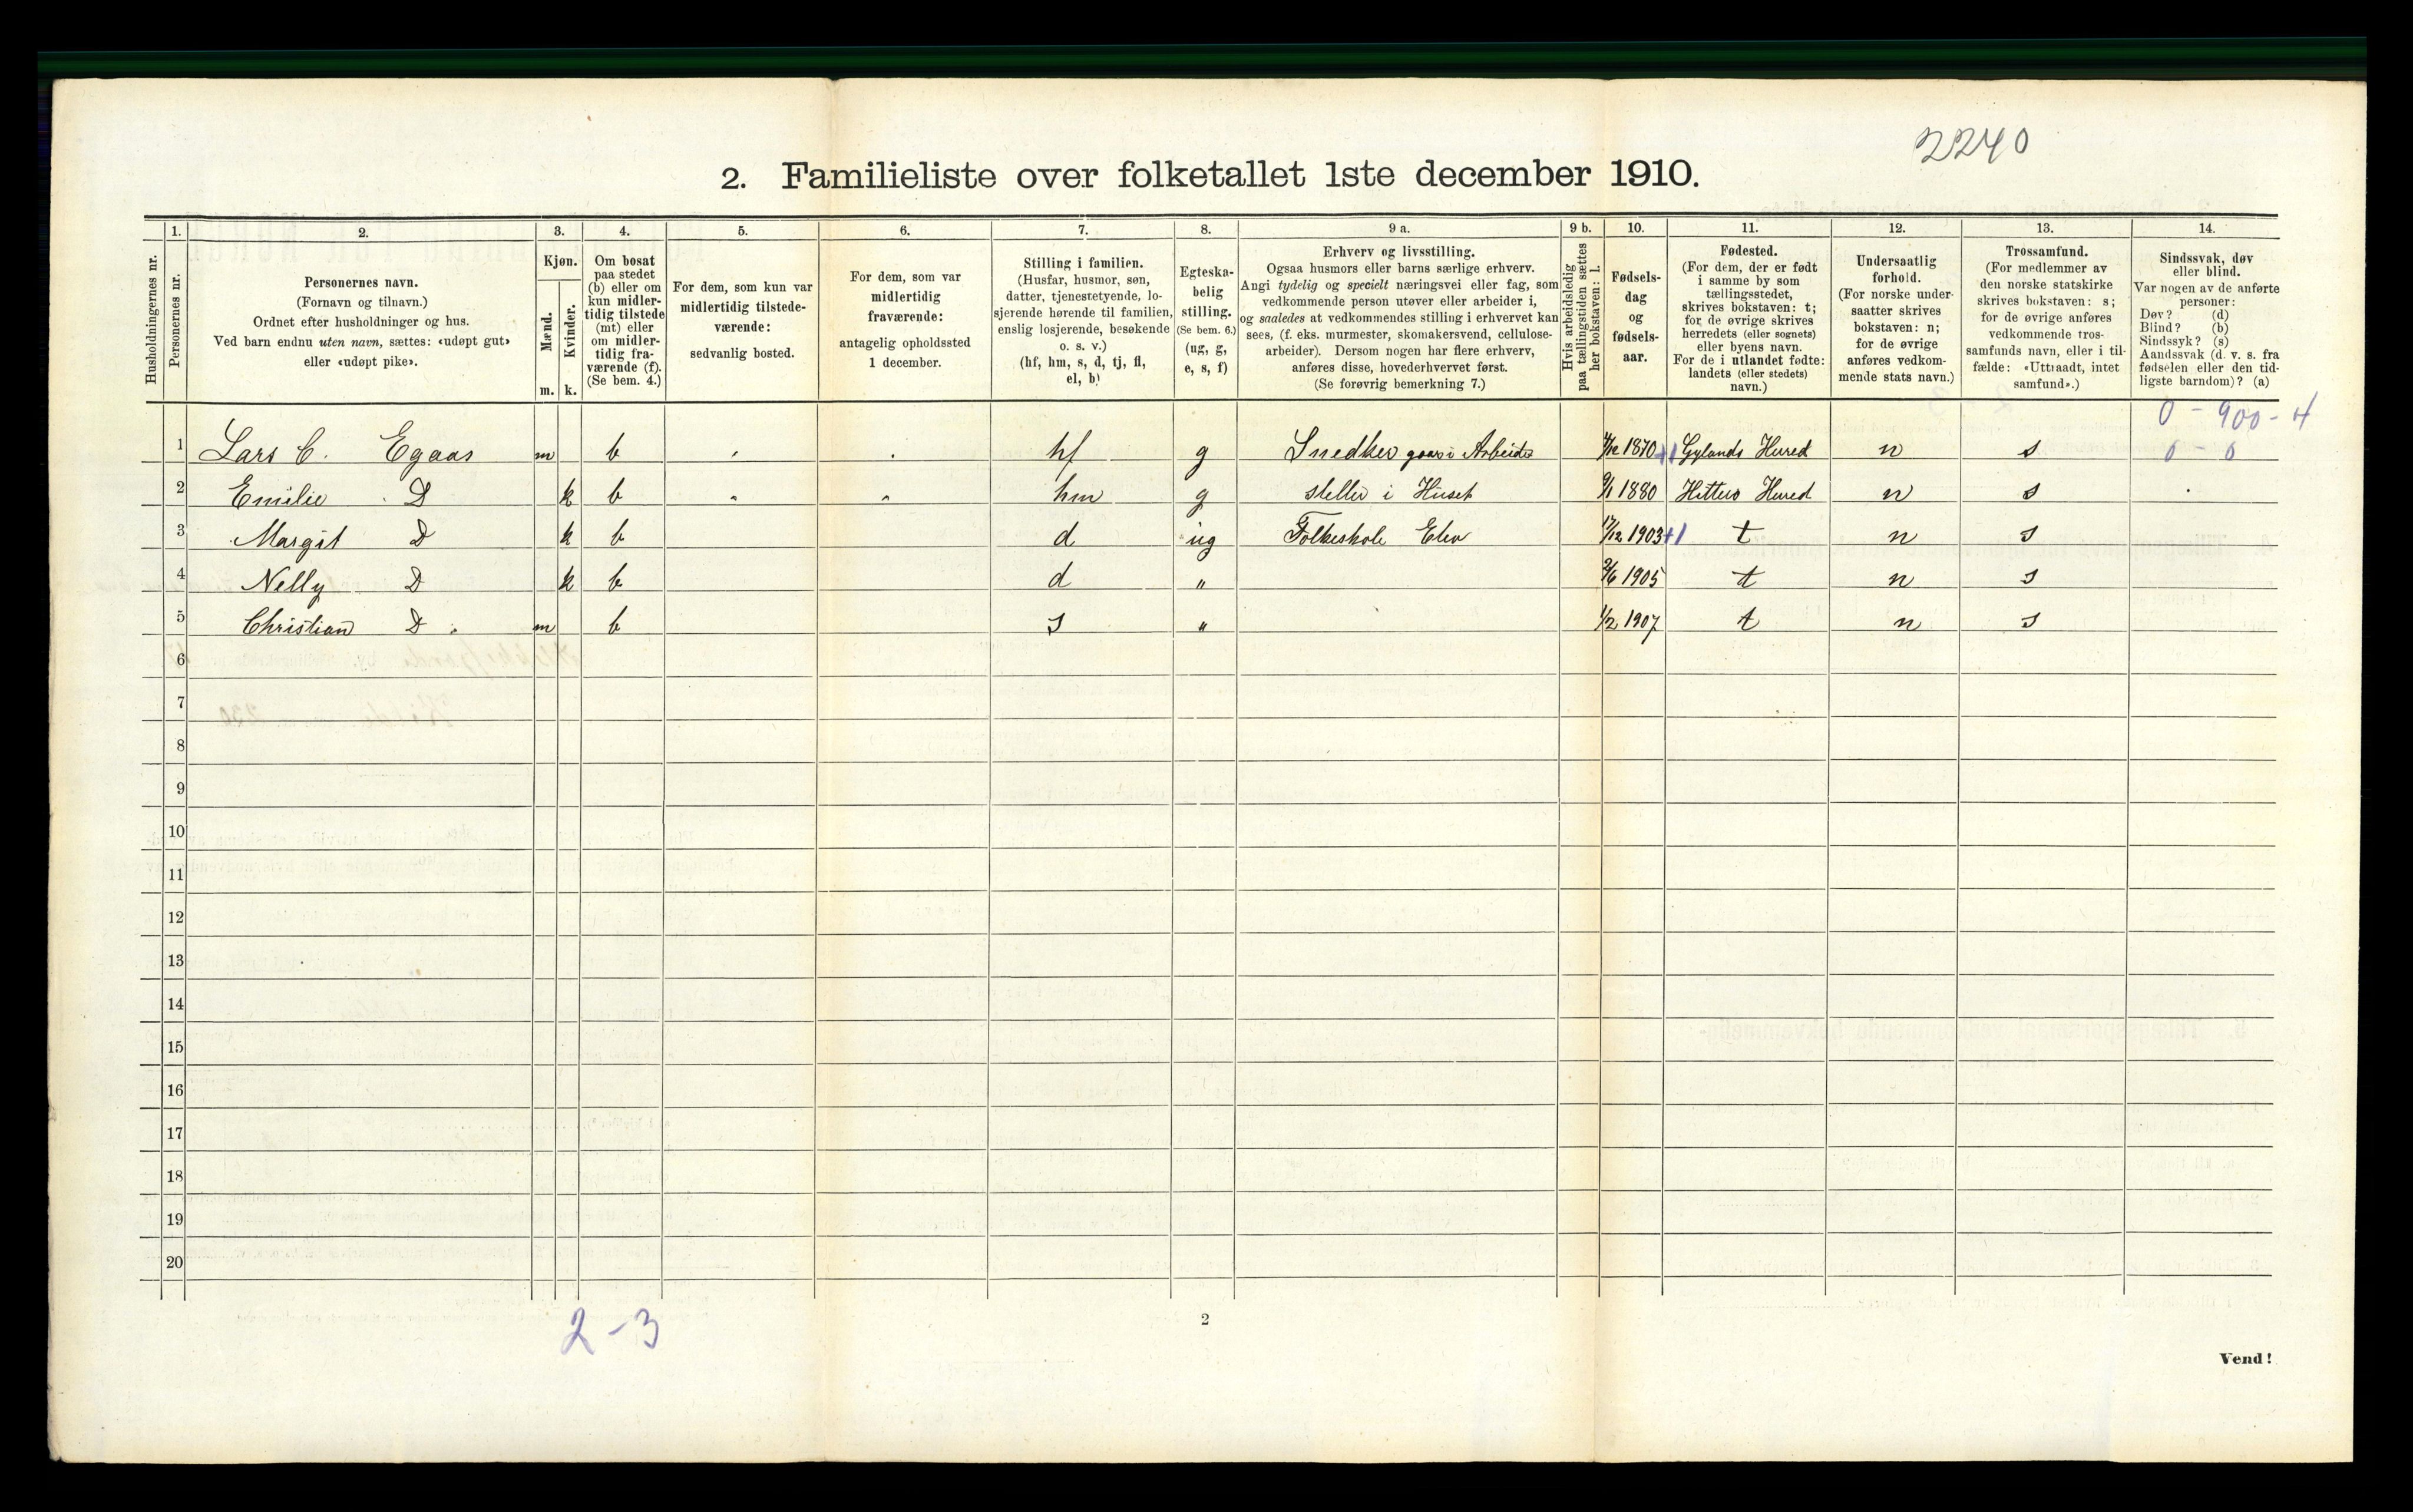 2240
2. Familieliste over folketallet 1ste december 1910.
1. 2. 3. 4. 5. 6. 7. 8. 9 a. 9 b. 10. 11. 12. 13. 14.
Husholdningernes nr.
Personernes nr.
Personernes navn.
(Fornavn og tilnavn.)
Ordnet efter husholdninger og hus.
Ved barn endnu uten navn, sættes: «udøpt gut»
eller «udøpt pike».
Kjøn.
Mænd.
m.
Kvinder.
k.
Om bosat
paa stedet
(b) eller om
kun midler-
tidig tilstede
(mt) eller
om midler-
tidig fra-
værende (f).
(Se bem. 4.)
For dem, som kun var
midlertidig tilstede-
værende:
sedvanlig bosted.
For dem, som var
midlertidig
fraværende:
antagelig opholdssted
1 december.
Stilling i familien.
(Husfar, husmor, søn,
datter, tjenestetyende, lo-
sjerende hørende til familien,
enslig losjerende, besøkende
o. s. v.)
(hf, hm, s, d, tj, fl,
el, b)
Egteska-
belig
stilling.
(Se bem. 6.)
(ug, g,
e, s, f)
Erhverv og livsstilling.
Ogsaa husmors eller barns særlige erhverv.
Angi tydelig og specielt næringsvei eller fag, som
vedkommende person utøver eller arbeider i,
og saaledes at vedkommendes stilling i erhvervet kan
sees, (f. eks. murmester, skomakersvend, cellulose-
arbeider). Dersom nogen har flere erhverv,
anføres disse, hovederhvervet først.
(Se forøvrig bemerkning 7.)
Hvis arbeidsledig
paa tællingstiden sættes
her bokstaven: l.
Fødsels-
dag
og
fødsels-
aar.
Fødested.
(For dem, der er født
i samme by som
tællingsstedet,
skrives bokstaven: t;
for de øvrige skrives
herredets (eller sognets)
eller byens navn.
For de i utlandet fødte:
landets (eller stedets)
navn.)
Undersaatlig
forhold.
(For norske under-
saatter skrives
bokstaven: n;
for de øvrige
anføres vedkom-
mende stats navn.)
Trossamfund.
(For medlemmer av
den norske statskirke
skrives bokstaven: s;
for de øvrige anføres
vedkommende tros-
samfunds navn, eller i til-
fælde: «Uttraadt, intet
samfund».)
Sindssvak, døv
eller blind.
Var nogen av de anførte
personer:
Døv? (d)
Blind? (b)
Sindssyk? (s)
Aandssvak (d. v. s. fra
fødselen eller den tid-
ligste barndom)? (a)
0 - 900 - 4
1 Lars C. Egaas m b hf g Snedker gaar i Arbeide 1870 +1 Gylands Hered n s 0 - 0
2 Emilie D k b hm g steller i Huset 9/1 1880 Hitterø Hered n s
3 Margit D k b d ug Folkeskole Elev 17/12 1903 +1 t n s
4 Nelly D k b d " 1905 t n s
5 Christian D m b s " 1/2 1907 t n s
6
7
8
9
10
11
12
13
14
15
16
17
18
19
20
2 - 3
2
Vend!